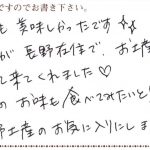 ですのでお書き下さい。
も美味しかったです
が長野在住で、お土産
て来てくれました♡
のお味も食べてみたいと
野土産のお気に入りにしま